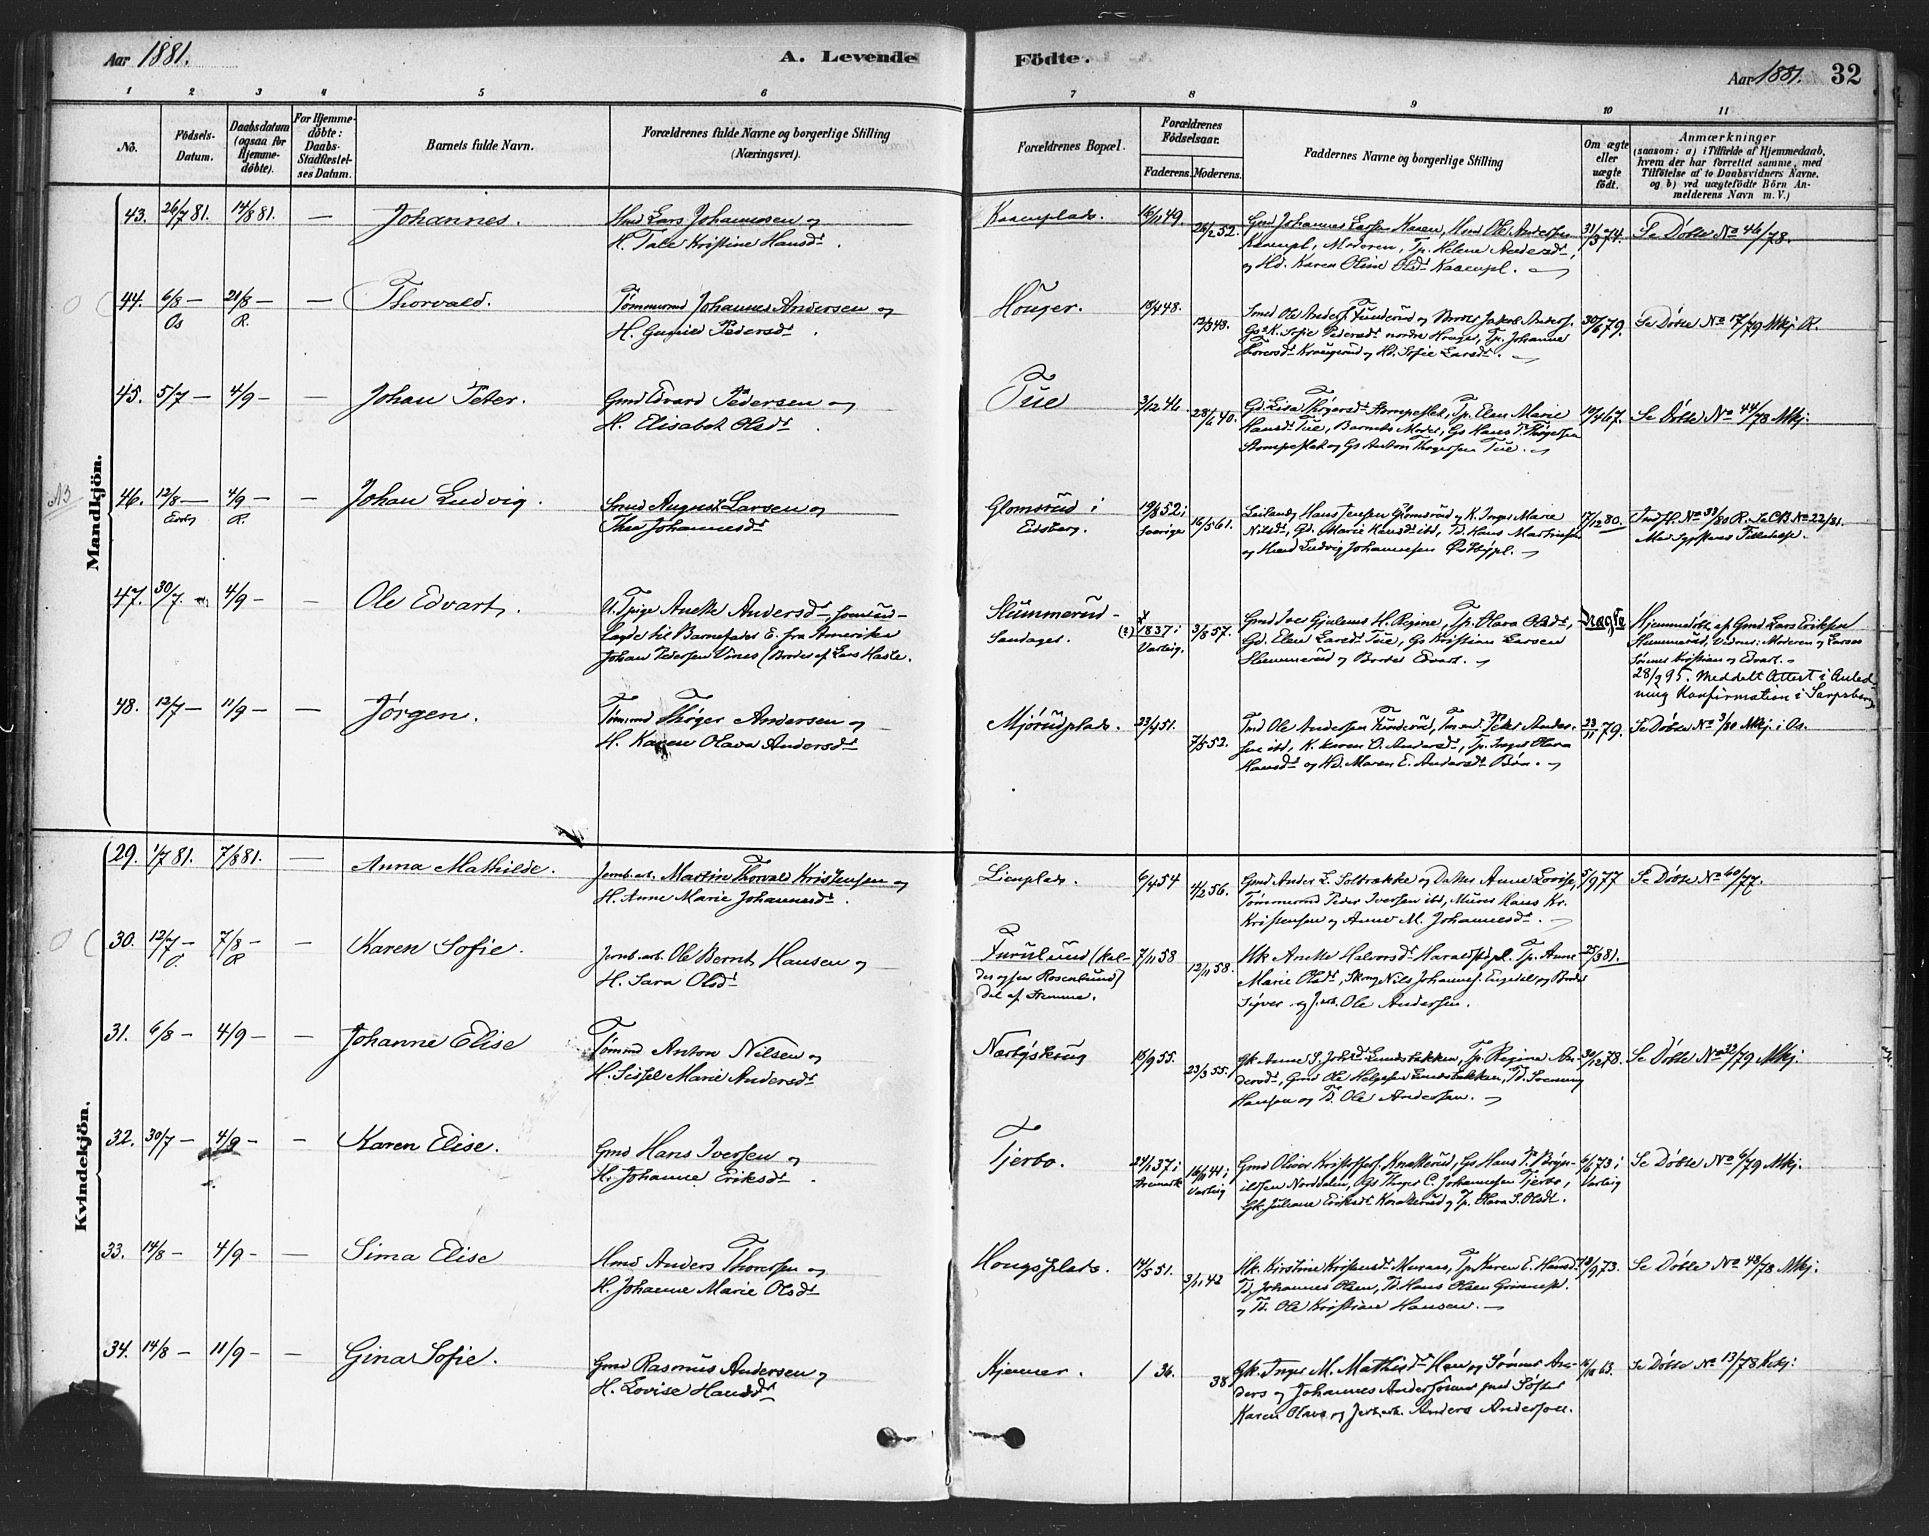 Aar 1881.
A. Levende
Födte.
Aar 1881. 32
1 2 3 4 5 6 7 8 9 10 11
No.
Födsels-Datum.
Daabsdatum (ogsaa for Hjemme-døbte).
For Hjemme-døbte: Daabs-Stadfæstel-ses Datum.
Barnets fulde Navn.
Forældrenes fulde Navne og borgerlige Stilling (Næringsvei).
Forældrenes Bopæl.
Forældrenes Födselsaar.
Faderens. Moderens.
Faddernes Navne og borgerlige Stilling
Om ægte eller uægte födt.
Anmærkninger
(saasom: a) i Tilfælde af Hjemmedaab, hvem der har forrettet samme, med Tilföielse af to Daabsvidners Navne. og b) ved uægtefödte Börn An-melderens Navn m. V.)
Mandkjön.
43. 26/7 81. 14/8 81. — Johannes. Hmd Lars Johannesen og
H. Tale Kristine Hansdr.
Kaaenplads. 16/11 49. 26/2 52. Gmd Johannes Larsen Kaaen, Hmd Ole Andersen
Kaaenpl., Moderen, Tp. Helene Andersdr,
og Hd. Karen Oline Olsdr Kaaenpl.
31/3 74. Se Døbte No 46/78.
44. 6/8 — Os 21/8 — R. — Thorvald. Tømmermd Johannes Andersen og
H. Gunild Pedersdr.
Houger. 18/4 48. 12/3 48. Smed Ole Anders. Funderud og Broder Jakob Anders.
Gsk. Sofie Pedersdr nordre Houge, Tp. Johanne
Thoresdr Kraugerud og Hd. Sofie Larsdr.
30/6 79. Se Døbte No 17/79 Mkj. R.
45. 5/7 — 4/9 — — Johan Peter. Gmd Edvard Pedersen og
H. Elisabet Olsdr.
Tue 3/12 46. 28/6 40. Gd. Lisa Thøgersdr Stompeflek, Tp. Elen Marie
Hansdr Tue, Barnets Moder, Gs Hans T. Thøgersen
Stompeflek og Gs Anton Thøgersen Tue.
19/4 67. Se Døbte No 44/78 Mkj.
46. 12/8 — Eidsbg 4/9 — R. — Johan Ludvig. Smd August Larsen og
Thea Johannesdr
Glomsrud i
Eidsberg.
19/8 52 i Sverige 16/5 61. Leilend. Hans Jensen Glomsrud og K. Inger Marie
Nilsdr, Gd. Marie Hansdr ibd, Td. Hans Martinsen
og Hmd Ludvig Johannesen Østbypl.
17/12 80.
47. 30/7. 4/9 — — Ole Edvart. U. Tpige Anette Andersdr
Lagde til Barnefader E. fra Amerika
Johan Pedersen Vines (Broder af Lars Hasle.
Slummerud
Søndager.
(?) 1837 i Varteig. 3/8 57. Gmd Iver Gjulems H. Regine, Tp. Olava Olsdr,
Gd. Elen Larsdr Tue, Gs Kristian Larsen
Slummerud og Broder Edvart.
Uægte Hjemmedøbt af Gmd Lars Eriksen
Slummerud, Vidner: Moderen og Larses
Sønner Kristian og Edvart.
28/9 95. Meddelt Attest i Anled-
ning Konfirmation i Sarpsborg
48. 12/7 — 11/9 — — Jørgen. Tømmd Thøger Andersen og
H. Karen Olava Andersdr
Mjørudplads. 23/4 51. 7/5 52. Tmd Ole Andersen Funderud, Tømmd Peter Ander-
sen ibd, K. Karen O. Andersdr, Tp. Inger Olava
Hansdr og Hd. Maren E. Andersdr Bøn.
23/11 79. Se Døbte No 3/80 Mkj. i Os.
Kvindekjön.
29. 1/7 81. 7/8 81. — Anna Mathilde. Jernb.arb. Martin Thorval Kristensen og
H. Anne Marie Johannesdr.
Lienplads. 6/4 54 4/2 56. Gmd Ander L. Solbrække og Datter Anne Lovise,
Tømmermd Peder Iversen ibd, Murer Hans Kr.
Kristensen og Anne M. Johannesdr.
5/9 77 Se Døbte No 60/77.
30. 12/7 — 7/8 — R — Karen Sofie. Jernb.arb. Ole Bernt Hansen og
H. Sara Olsdr
Furulund (kal-
des ogsaa Rosenlund)
Del af Stemme.
7/11 58 12/11 58. Hk Anette Halvorsdr Haraldstpl. Tp. Anne
Marie Olsdr, Skrog Nils Johannes. Engedal, og Broder
Siver og J.arb. Ole Andersen.
25/3 81.
31. 6/8 — 4/9 — — Johanne Elise Tømmd Anton Nilsen og
H. Sissel Marie Andersdr
Nærbyskrog 15/9 55. 23/3 55. Gk. Anne S. Johsdr Lundsbakken, Tp. Regine An-
dersdr, Gmd Ole Helgesen Lundsbakken, Td. Svenning
Hansen og Td. Ole Andersen.
30/12 78. Se Døbte No 32/79 Mkj.
32. 30/7 — 4/9 — — Karen Elise. Gmd Hans Iversen og
H. Johanne Eriksdr.
Tjerbo. 24/1 37 i Aremark 16/11 41 i Varteig Gmd Oliver Kristoffers. Knatterud, Gs Hans T. Bryn-
ildsen Norddalen, Gs Thøger C. Johannesen Tjerbo,
Gk. Juliane Eriksdr Knatterud og Tp. Olava S. Olsdr.
6/6 73 i Varteig Se Døbte No 6/79 Mkj.
33. 14/8 — 4/9 — — Sima Elise Hmd Anders Thoresen og
H. Johanne Marie Olsdr
Hougsplads. 14/5 51. 3/11 42 Hk. Kirstine Kristensdr Muraas, Tp. Karen E. Hansdr
Td. Johannes Olsen, Td. Hans Olsen Grimmepl.
og Td. Ole Kristian Hansen.
13/9 73. Se Døbte No 43/78 Mkj.
34. 14/8 — 11/9 — — Gina Sofie. Gmd Rasmus Andersen og
H. Lovise Hansdr
Kjenner. / 36. 38 Gk. Inger M. Mathisdr Hen og Sønner An-
ders og Johannes Anderssønner med Søster
Karen Olava og Jerb.arb. Anders Anderson.
16/10 63. Se Døbte No 13/78 Kvkj: